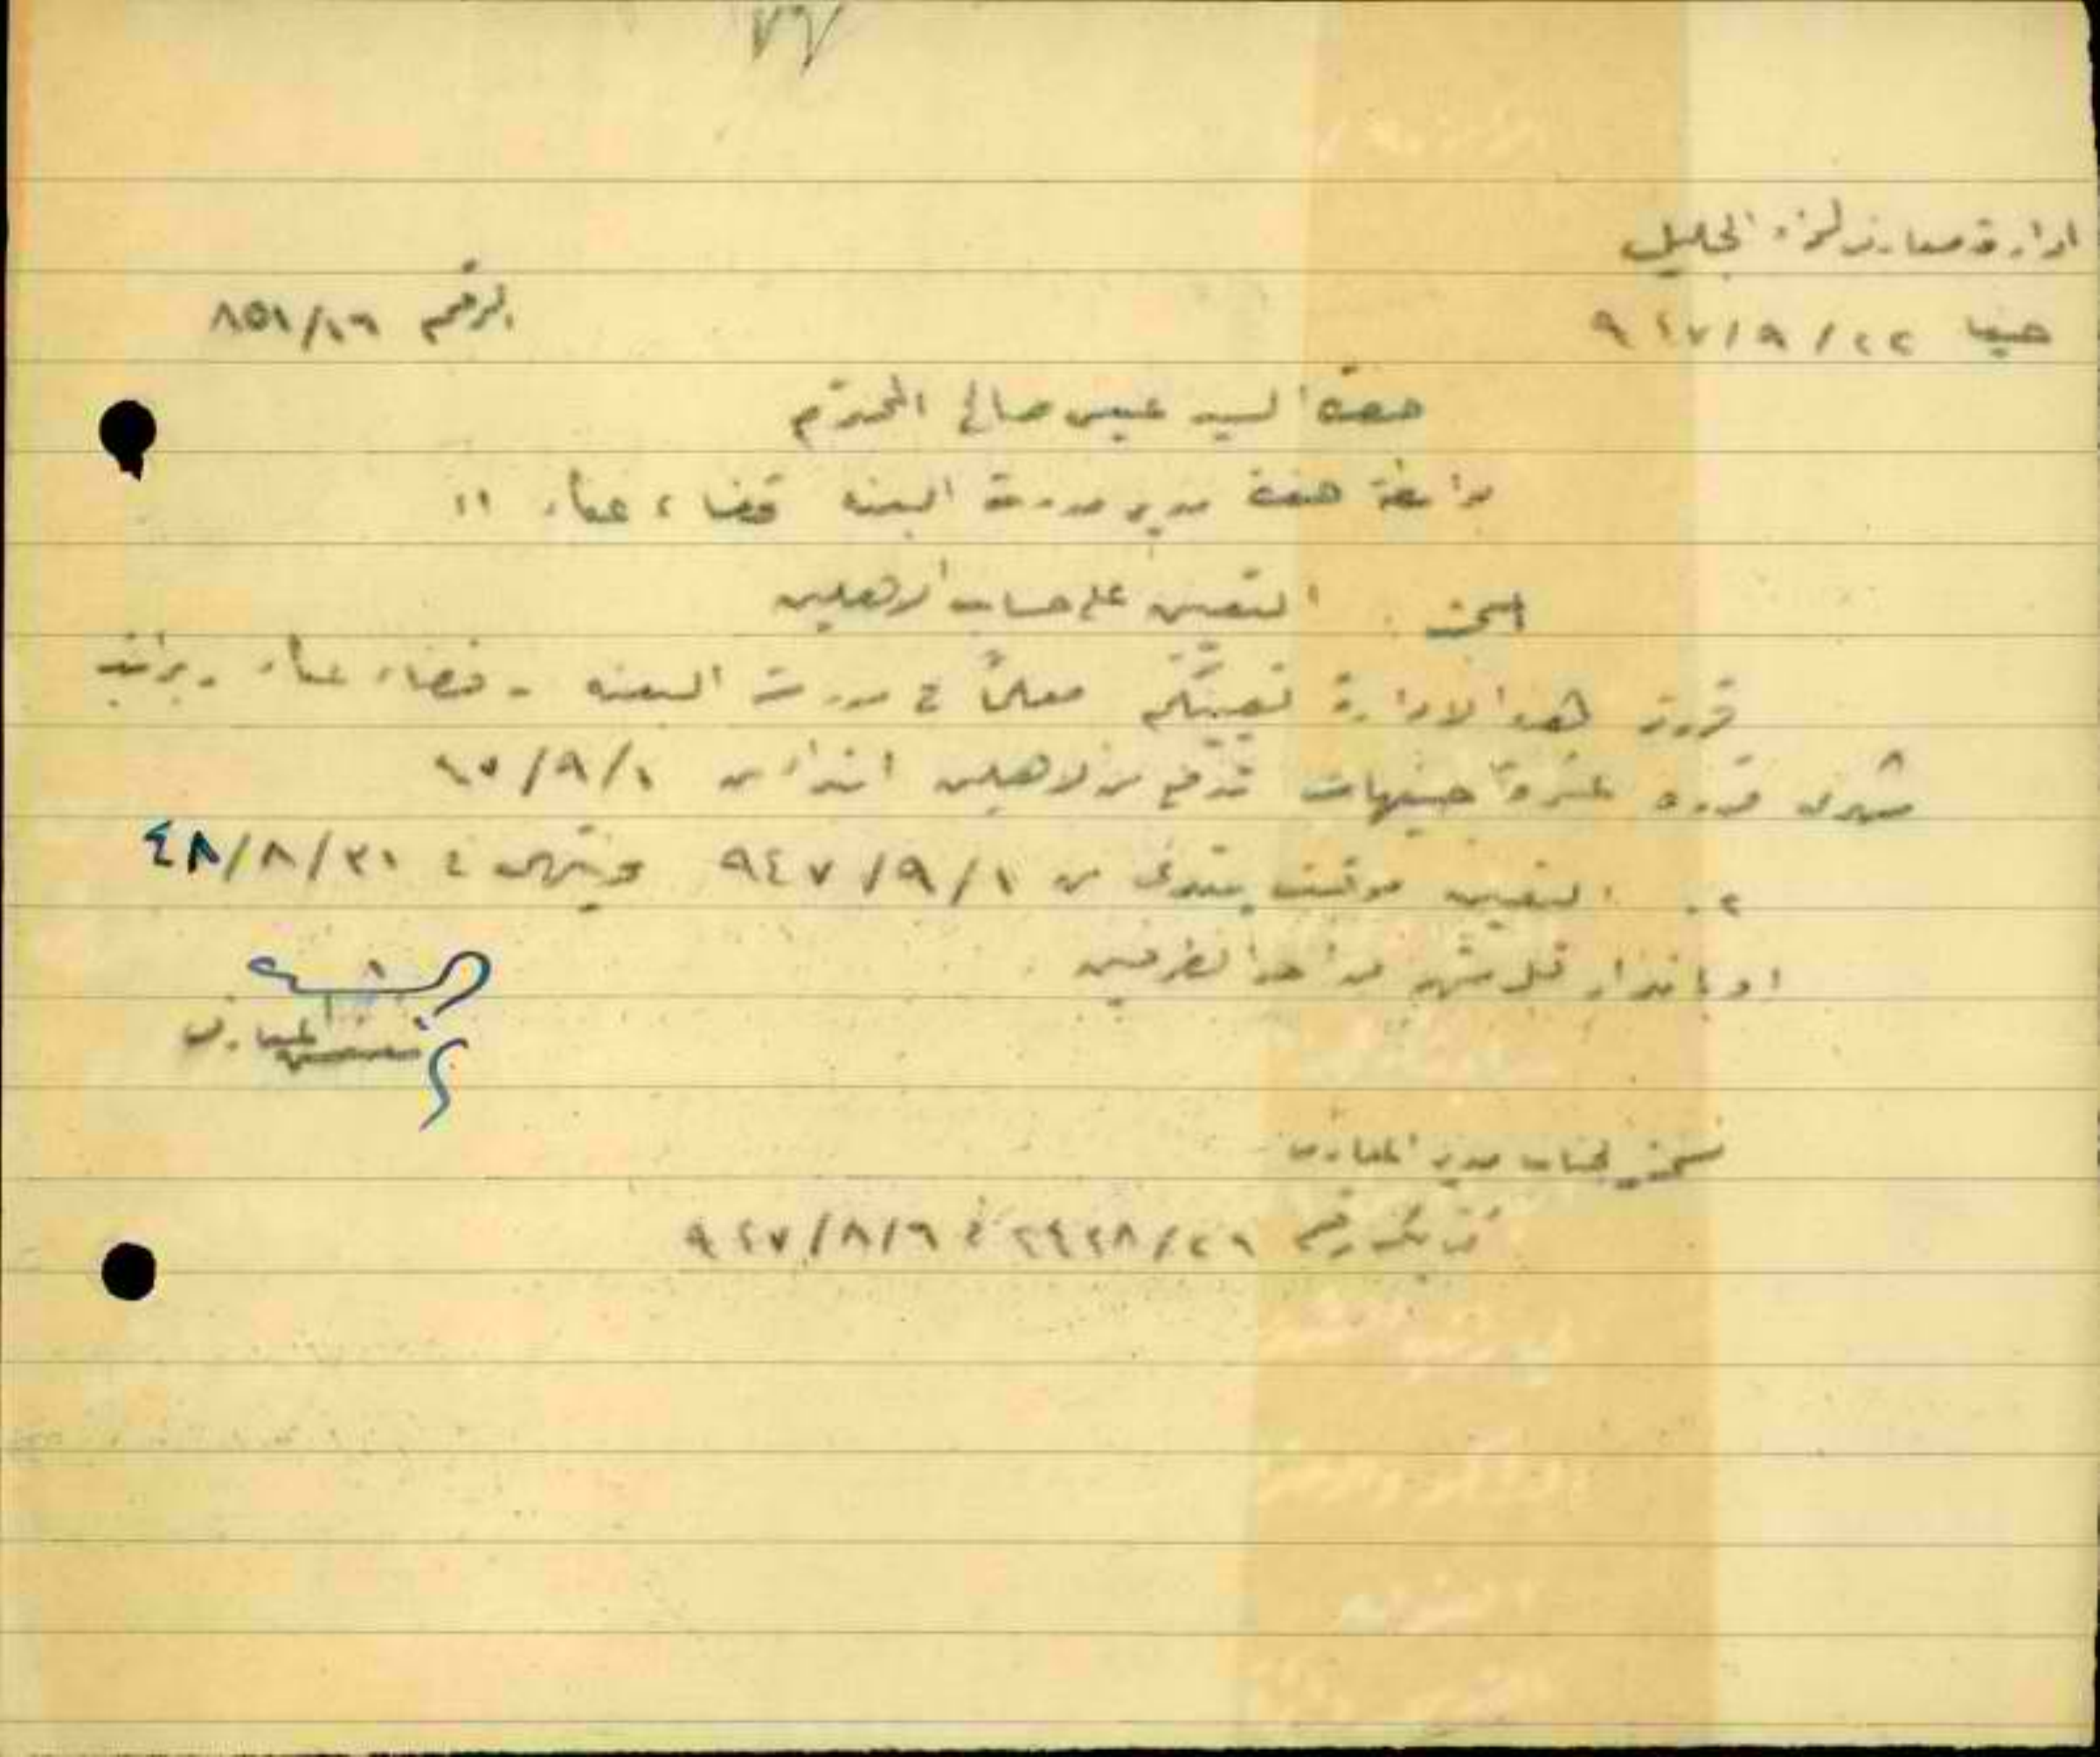 ٧٦
ادارة معارف لواء الجليل
حيفا ٢٢ / ٩ / ٩٤٧
الرقم ٨٥١/١٦
حضرة السيد عيسى صالح المحترم
بواسطة حضرة مدير مدرسة البعنه قضاء عكاء
البحث : التعيين على حساب الاهلين
قررت هذه الادارة تعيينكم معلماً في مدرسة البعنه - قضاء عكاء - براتب
شهري قدره عشرة جنيهات تدفع من الاهلين ابتداء من ٤٧/٩/١
٢ . التعيين موقت يبتدئ من ٩٤٧/٩/١ وينتهي في ٤٨/٨/٣١
او بانذار قبل شهر من احد الطرفين .
مفتش المعارف
نسخة لجناب مدير المعارف
رقم ٩٤٧/٨/٦